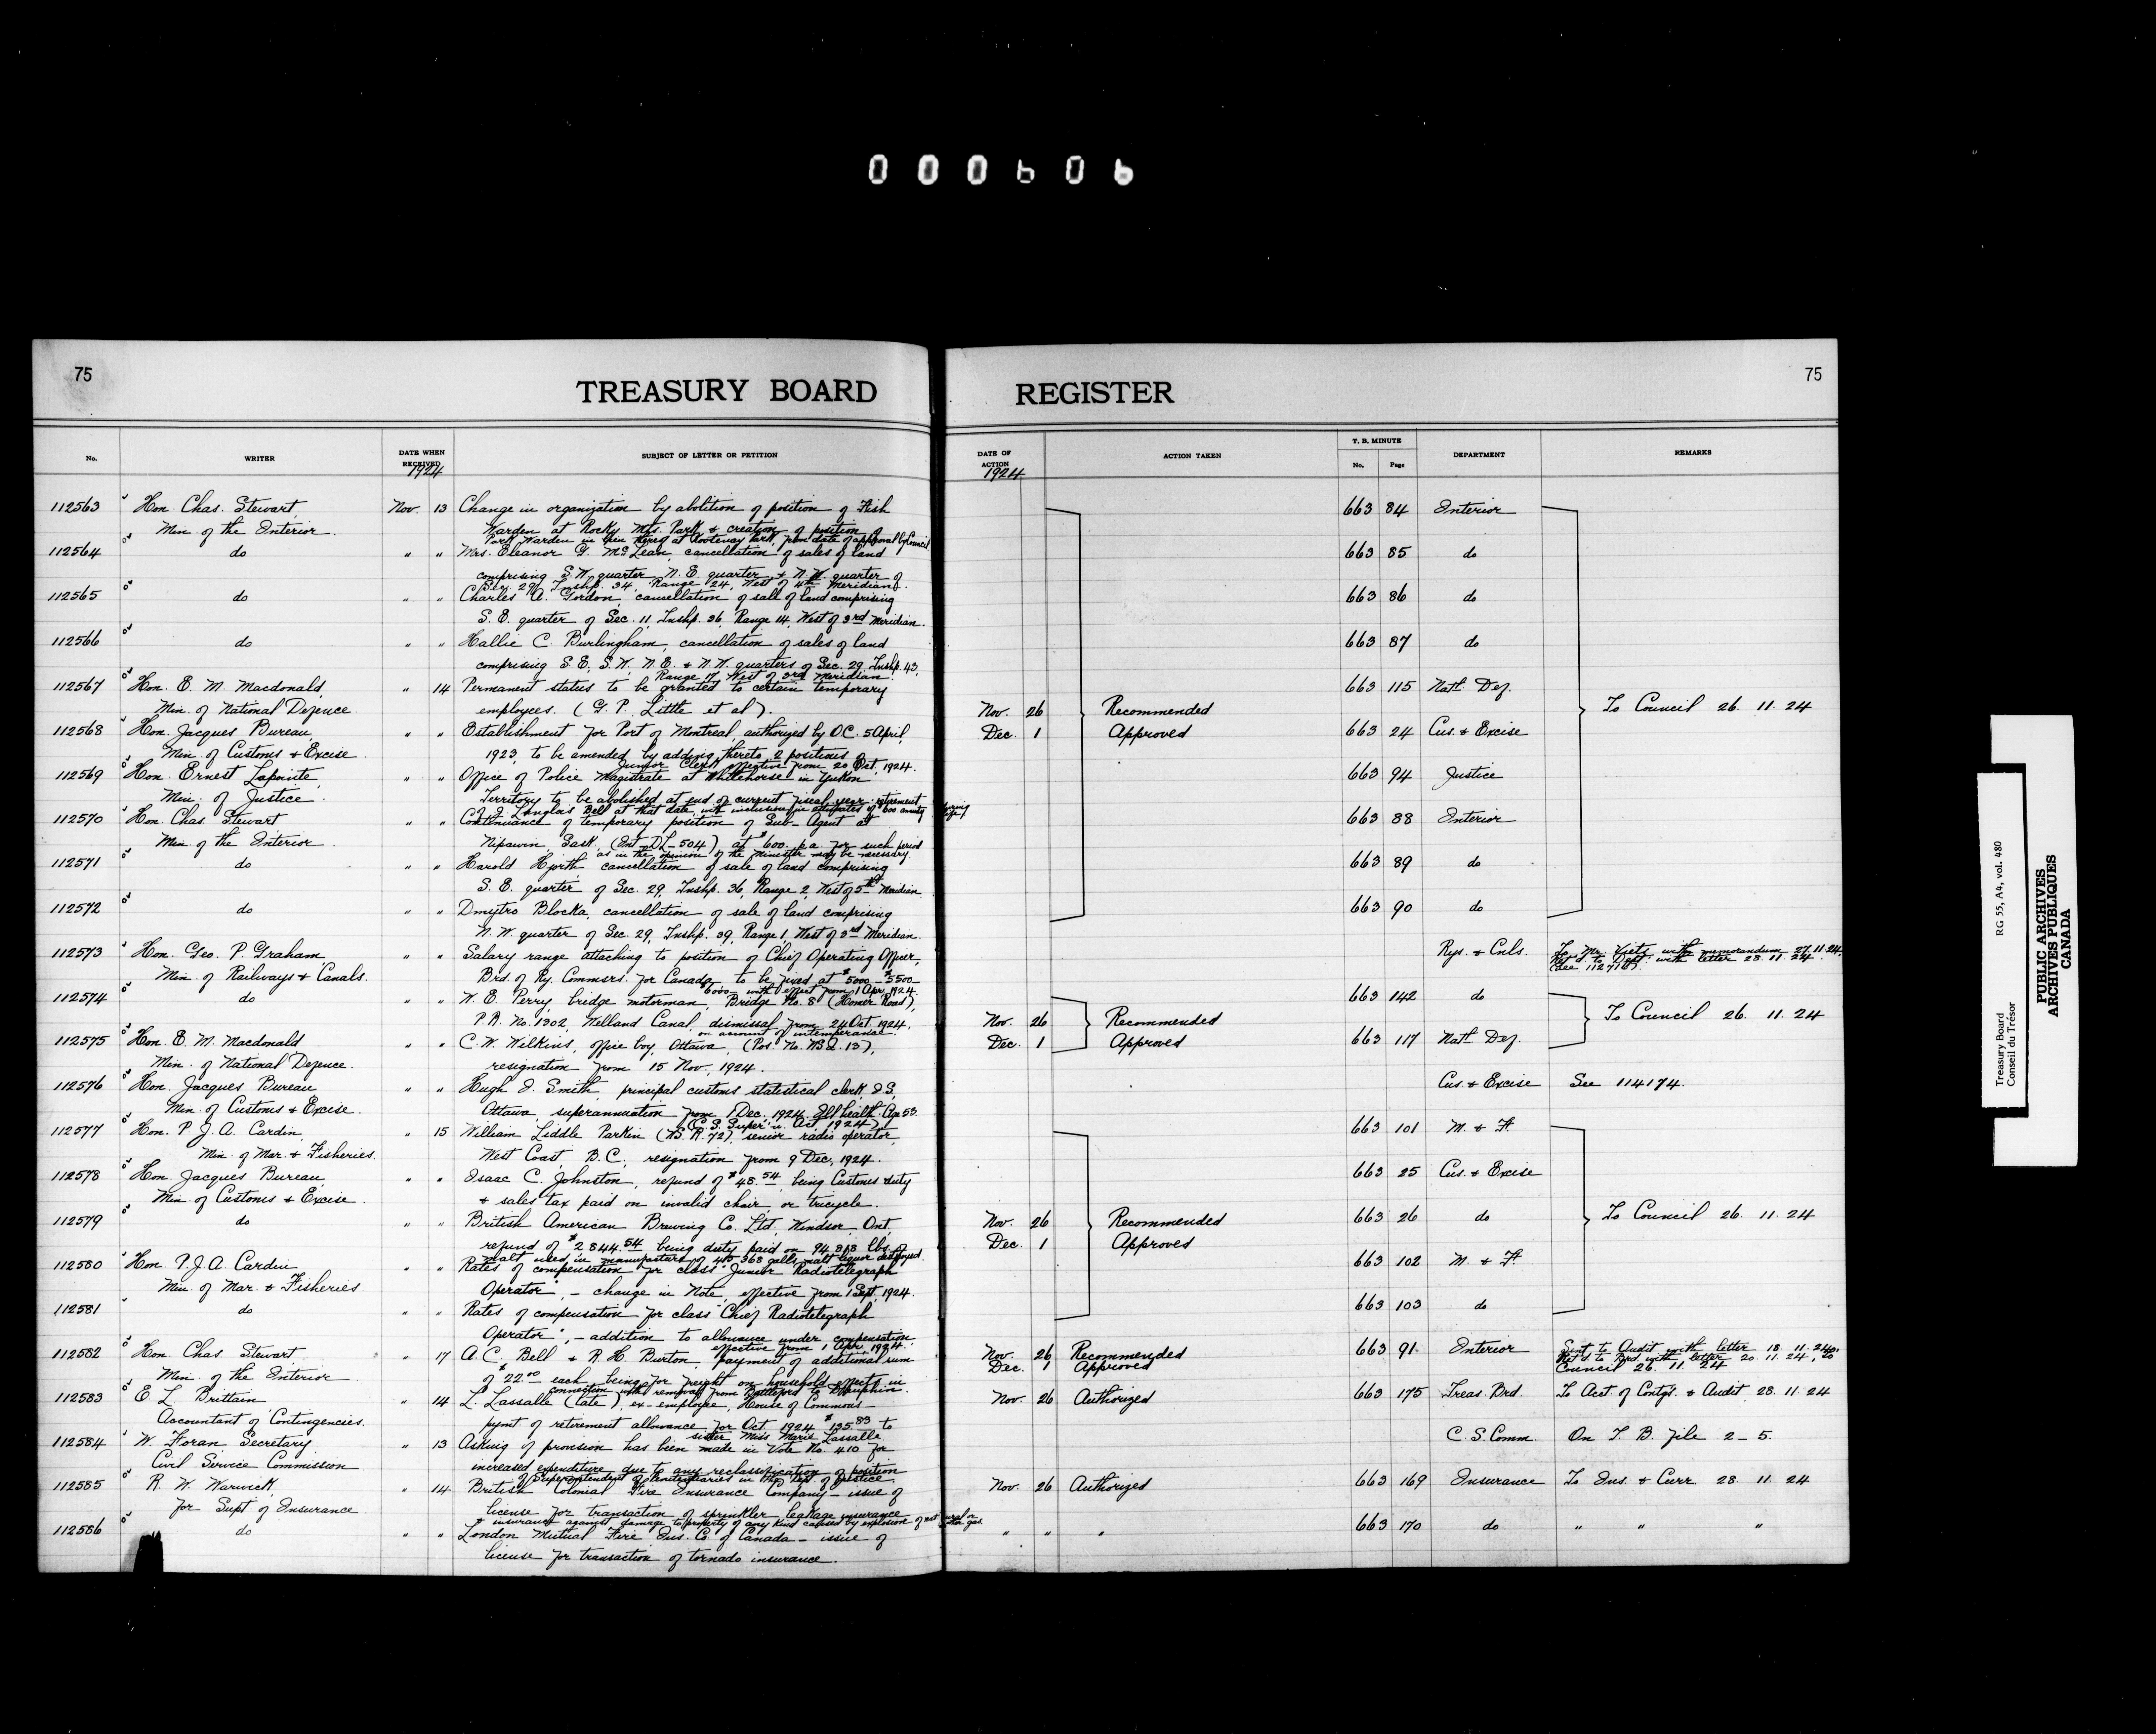 000606
75
TREASURY BOARD REGISTER
75
No. WRITER DATE WHEN RECEIVED SUBJECT OF LETTER OR PETITION DATE OF ACTION ACTION TAKEN T. B. MINUTE No. Page DEPARTMENT REMARKS
1924 1924
112563 Hon. Chas. Stewart, Nov. 13 Change in organization by abolition of position of Fish 663 84 Interior
Min. of the Interior. Warden at Rocky Mts. Park & creation of position of
Park Warden in lieu thereof at Kootenay Park, from date of approval by Council
112564 do " " Mrs. Eleanor G. McLean, cancellation of sales of land 663 85 do
comprising S.W. quarter, N.E. quarter & N.W. quarter of
Sec. 29, Tnshp. 34, Range 24, West of 4th Meridian.
112565 do " " Charles A. Gordon, cancellation of sale of land comprising 663 86 do
S.E. quarter of Sec. 11, Tnshp. 36, Range 14, West of 3rd Meridian.
112566 do " " Hallie C. Burlingham, cancellation of sales of land 663 87 do
comprising S.E., S.W. N.E. & N.W. quarters of Sec. 29, Tnshp. 43,
Range 17, West of 3rd Meridian.
112567 Hon. E. M. Macdonald, " 14 Permanent status to be granted to certain temporary 663 115 Natl. Def.
Min. of National Defence. employees. (G. P. Little et al). Nov. 26 Recommended To Council 26. 11. 24
112568 Hon. Jacques Bureau, " " Establishment for Port of Montreal, authorized by O.C. 5 April, Dec. 1 Approved 663 24 Cus. & Excise
Min. of Customs & Excise. 1923, to be amended by adding thereto 2 positions
Junior Clerk effective from 20 Oct. 1924.
112569 Hon. Ernest Lapointe " " Office of Police Magistrate at Whitehorse in Yukon 663 94 Justice
Min. of Justice. Territory to be abolished at end of current fiscal year - retirement
of Langlois Bell at that date, with inclusion in estimates of 600 annuity
112570 Hon. Chas. Stewart " " Continuance of temporary position of Sub-Agent at 663 88 Interior
Min. of the Interior. Nipawin, Sask. (Int-DL-504), at $600. p.a. for such period
as in the opinion of the Minister may be necessary.
112571 do " " Harold Hjorth, cancellation of sale of land comprising 663 89 do
S.E. quarter of Sec. 29, Tnshp. 36, Range 2, West of 5th Meridian.
112572 do " " Dmytro Blocka, cancellation of sale of land comprising 663 90 do
N.W. quarter of Sec. 29, Tnshp. 39, Range 1, West of 3rd Meridian.
112573 Hon. Geo. P. Graham, " " Salary range attaching to position of Chief Operating Officer, Rys. & Cnls. To Mr. with memorandum 27.11.24.
Min. of Railways & Canals. Brd. of Ry. Commrs. for Canada, to be fixed at $5000 - $5500 - Ret'd. to Dept. with letter 28.11.24
6000 - with effect from 1 Apr. 1924. (See 112716).
112574 do " " W. E. Perry, bridge motorman, Bridge No. 8 (Homer Road), 663 142 do
P.R. No. 1302, Welland Canal, dismissal from 24 Oct. 1924, Nov. 26 Recommended To Council 26. 11. 24
on account of intemperance.
112575 Hon. E. M. Macdonald " " C. W. Wilkins, office boy, Ottawa, (Pos. No. W.S.Q. 13), Dec. 1 Approved 663 117 Natl. Def.
Min. of National Defence. resignation from 15 Nov., 1924.
112576 Hon. Jacques Bureau " " Hugh J. Smith, principal customs statistical clerk, I.S. Cus. & Excise See 114174.
Min. of Customs & Excise. Ottawa, superannuation from 1 Dec. 1924. Ill health. Age 53.
(C. S. Super'n. Act, 1924)
112577 Hon. P. J. A. Cardin, " 15 William Liddle Parkin (W.S.R. 72), senior radio operator, 663 101 M. & F.
Min. of Mar. & Fisheries. West Coast, B.C., resignation from 9 Dec., 1924.
112578 Hon. Jacques Bureau, " " Isaac C. Johnston, refund of $48.54 being Customs duty 663 25 Cus. & Excise
Min. of Customs & Excise. & sales tax paid on invalid chair or tricycle.
112579 do " " British American Brewing Co. Ltd. Windsor, Ont. Nov. 26 Recommended 663 26 do To Council 26. 11. 24
refund of $2844.54 being duty paid on 94,818 lbs. of Dec. 1 Approved
malt used in manufacture of 40,368 galls. malt liquor destroyed.
112580 Hon. P. J. A. Cardin " " Rates of compensation for class "Junior Radiotelegraph 663 102 M. & F.
Min. of Mar. & Fisheries Operator", - change in Note, effective from 1 Sept. 1924.
112581 do " " Rates of compensation for class "Chief Radiotelegraph 663 103 do
Operator", - addition to allowance under compensation,
effective from 1 Apr. 1924.
112582 Hon. Chas. Stewart " 17 A. C. Bell & R. H. Burton, payment of additional sum Nov. 26 Recommended 663 91 Interior Sent to Audit with letter 18. 11. 24.
Min. of the Interior of $22.00 each, being for freight on household effects in Dec. 1 Approved Ret'd. to Brd. with letter 20. 11. 24, to
connection with removal from Battleford to Dauphin. Council 26. 11. 24
112583 E. L. Brittain, " 14 L. Lassalle (late), ex-employee, House of Commons - Nov. 26 Authorized 663 175 Treas. Brd. To Acct. of Contgs. & Audit 28. 11. 24
Accountant of Contingencies. pymt. of retirement allowance for Oct. 1924 $135.83 to
sister Miss Marie Lassalle.
112584 W. Foran, Secretary " 13 Asking if provision has been made in Vote No. 410 for C. S. Comm. On T. B. file 2-5.
Civil Service Commission increased expenditure due to any reclassification of position
of Superintendent of Penitentiaries in the Dept. of Justice
112585 R. W. Warwick, " 14 British Colonial Fire Insurance Company - issue of Nov. 26 Authorized 663 169 Insurance To Ins. & Curr. 28. 11. 24
for Supt. of Insurance. license for transaction of sprinkler leakage insurance
& insurance against damage to property of any kind caused by explosion of natural or other gas.
112586 do " " London Mutual Fire Ins. Co. of Canada - issue of " " " 663 170 do " " "
license for transaction of tornado insurance.
Treasury Board RG 55, A4, vol. 480
Conseil du Trésor
PUBLIC ARCHIVES
ARCHIVES PUBLIQUES
CANADA